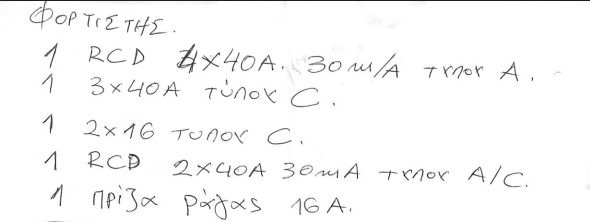 ΦΟΡΤΙΣΤΗΣ.
1 RCD 4×40A. 30m/A τυπου A.
1 3×40A τύπου C.
1 2×16 τυπου C.
1 RCD 2×40A 30mA τυπου A/C.
1 πρίζα ράγας 16A.